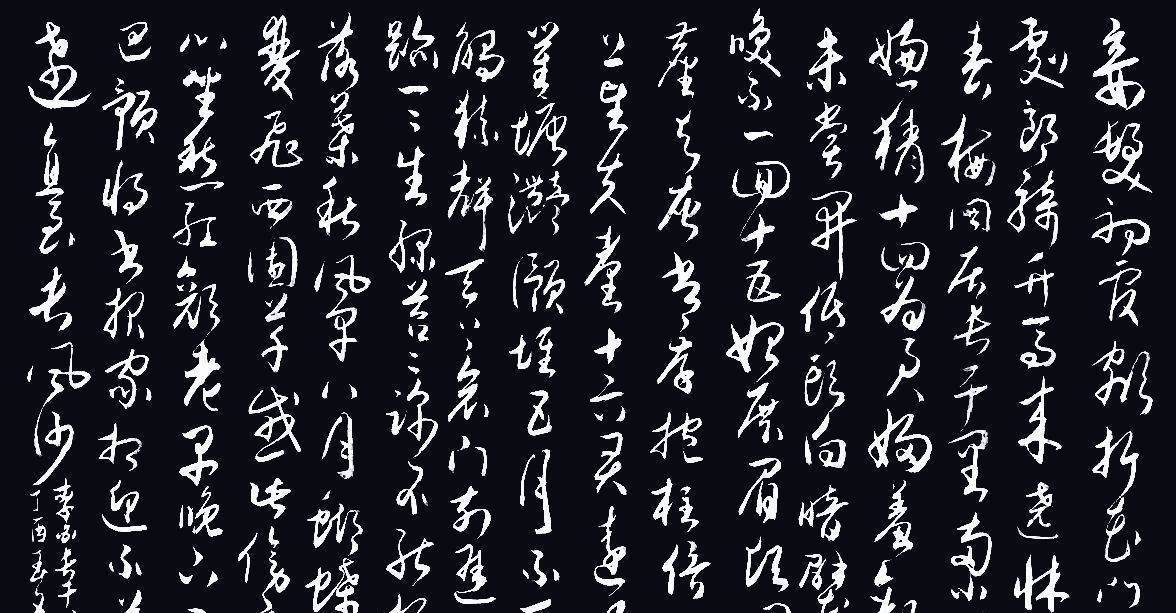 妾髮初覆額折花門
劇郎騎竹馬來遶牀
青梅同居長干里兩小
嫌猜十四為君婦羞顏
未嘗開低頭向暗壁
喚不一回十五始展眉願
塵與灰常存抱柱信
上望夫臺十六君遠
瞿塘灩澦堆五月不
觸猿聲天上哀門前遲
跡一々生綠苔々深不能
落葉秋風早八月蝴蝶
雙飛西園草感此傷
心坐愁紅顏老早晚下
巴預將書報家相迎不
遠直至長風沙
李白長干
丁酉